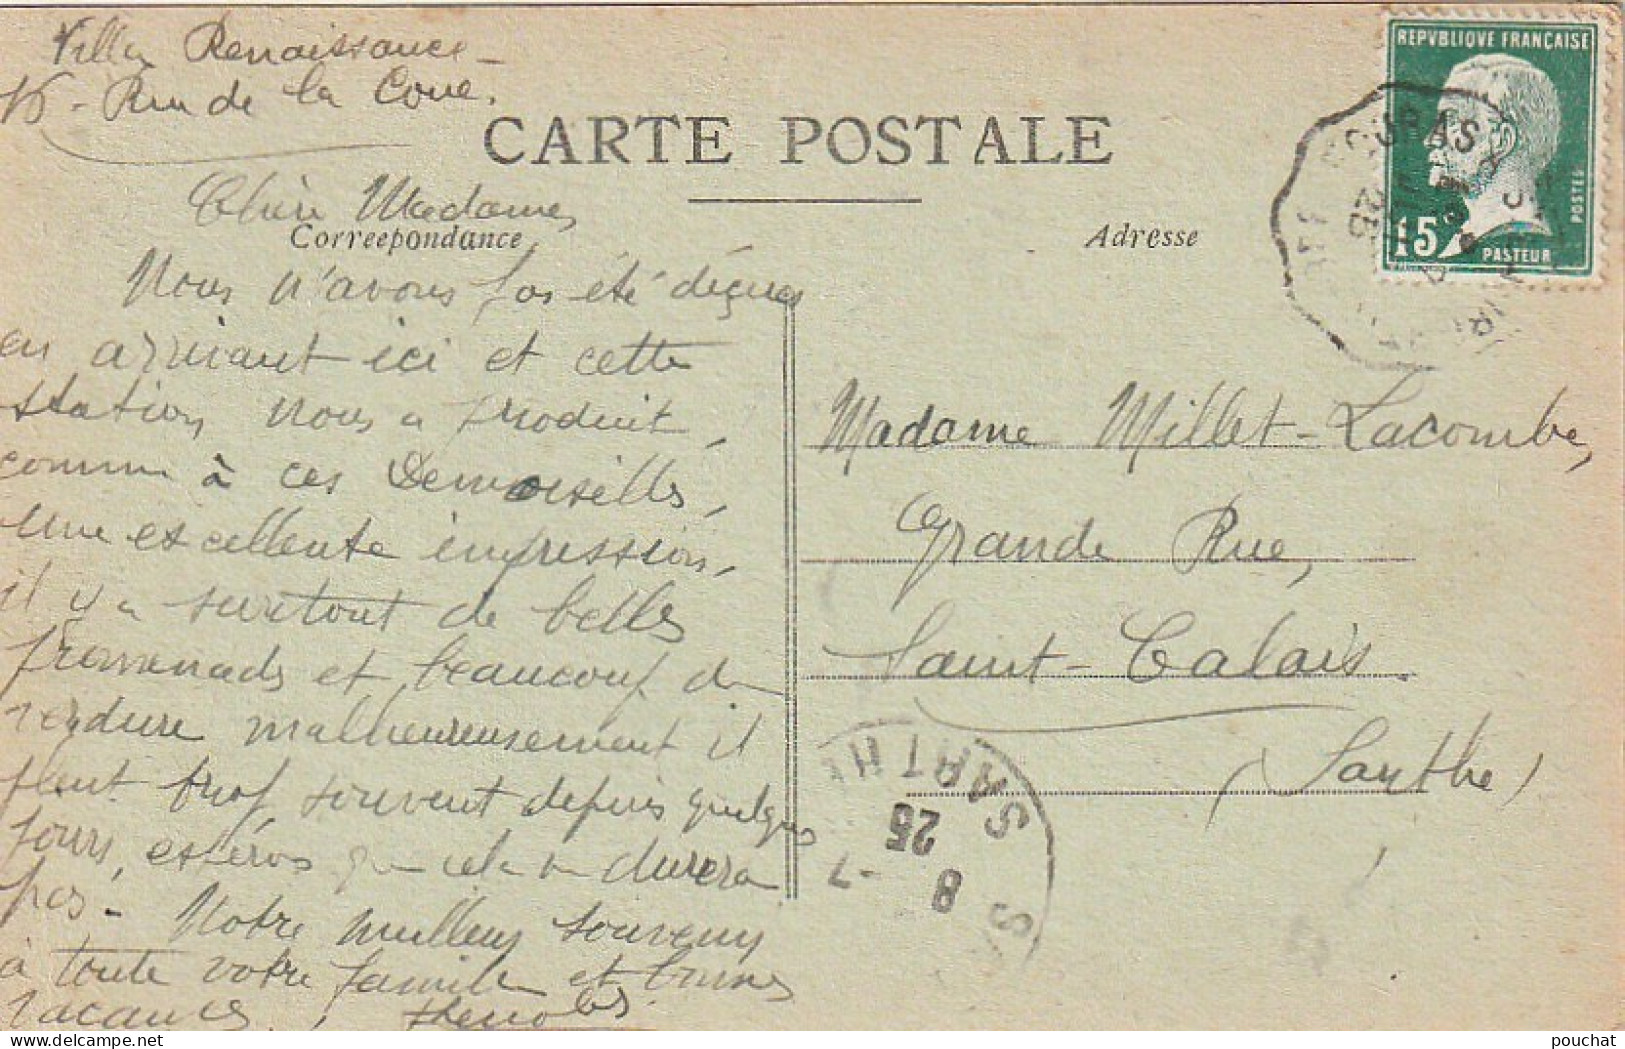 Villa Renaissance -
Rue de la Coue.
CARTE POSTALE
Chère Madame,
Correspondance
Nous n'avons pas été déçues
en arrivant ici et cette
station nous a produit,
comme à ces Demoiselles,
une excellente impression,
il y a surtout de belles
promenades et beaucoup de
verdure malheureusement il
pleut trop souvent depuis quelques
jours, espérons que cela ne durera
pas - Notre meilleur souvenir
à toute votre famille et bonnes
vacances.
Adresse
REPVBLIQVE FRANÇAISE
15
PASTEUR
POSTES
Madame Millet-Lacombe,
Grande Rue,
Saint-Calais
(Sarthe)
SARTHE
8 -7
25
pouchat